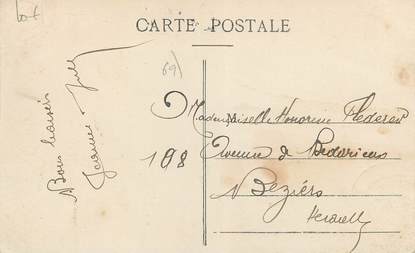 lot
CARTE POSTALE
69
Bons baisers
Mademoiselle Honorine
108 Avenue de Bédarieux
Béziers
Herault